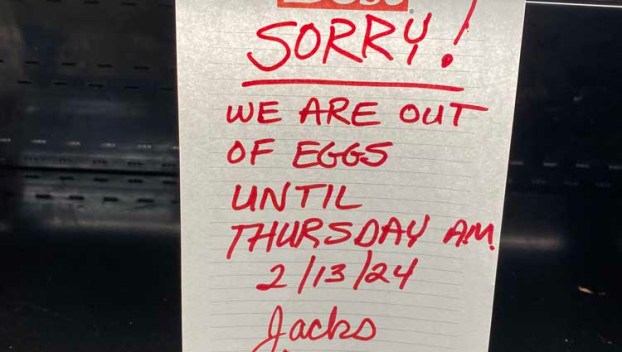 SORRY!
WE ARE OUT
OF EGGS
UNTIL
THURSDAY AM.
2/13/24
Jacks